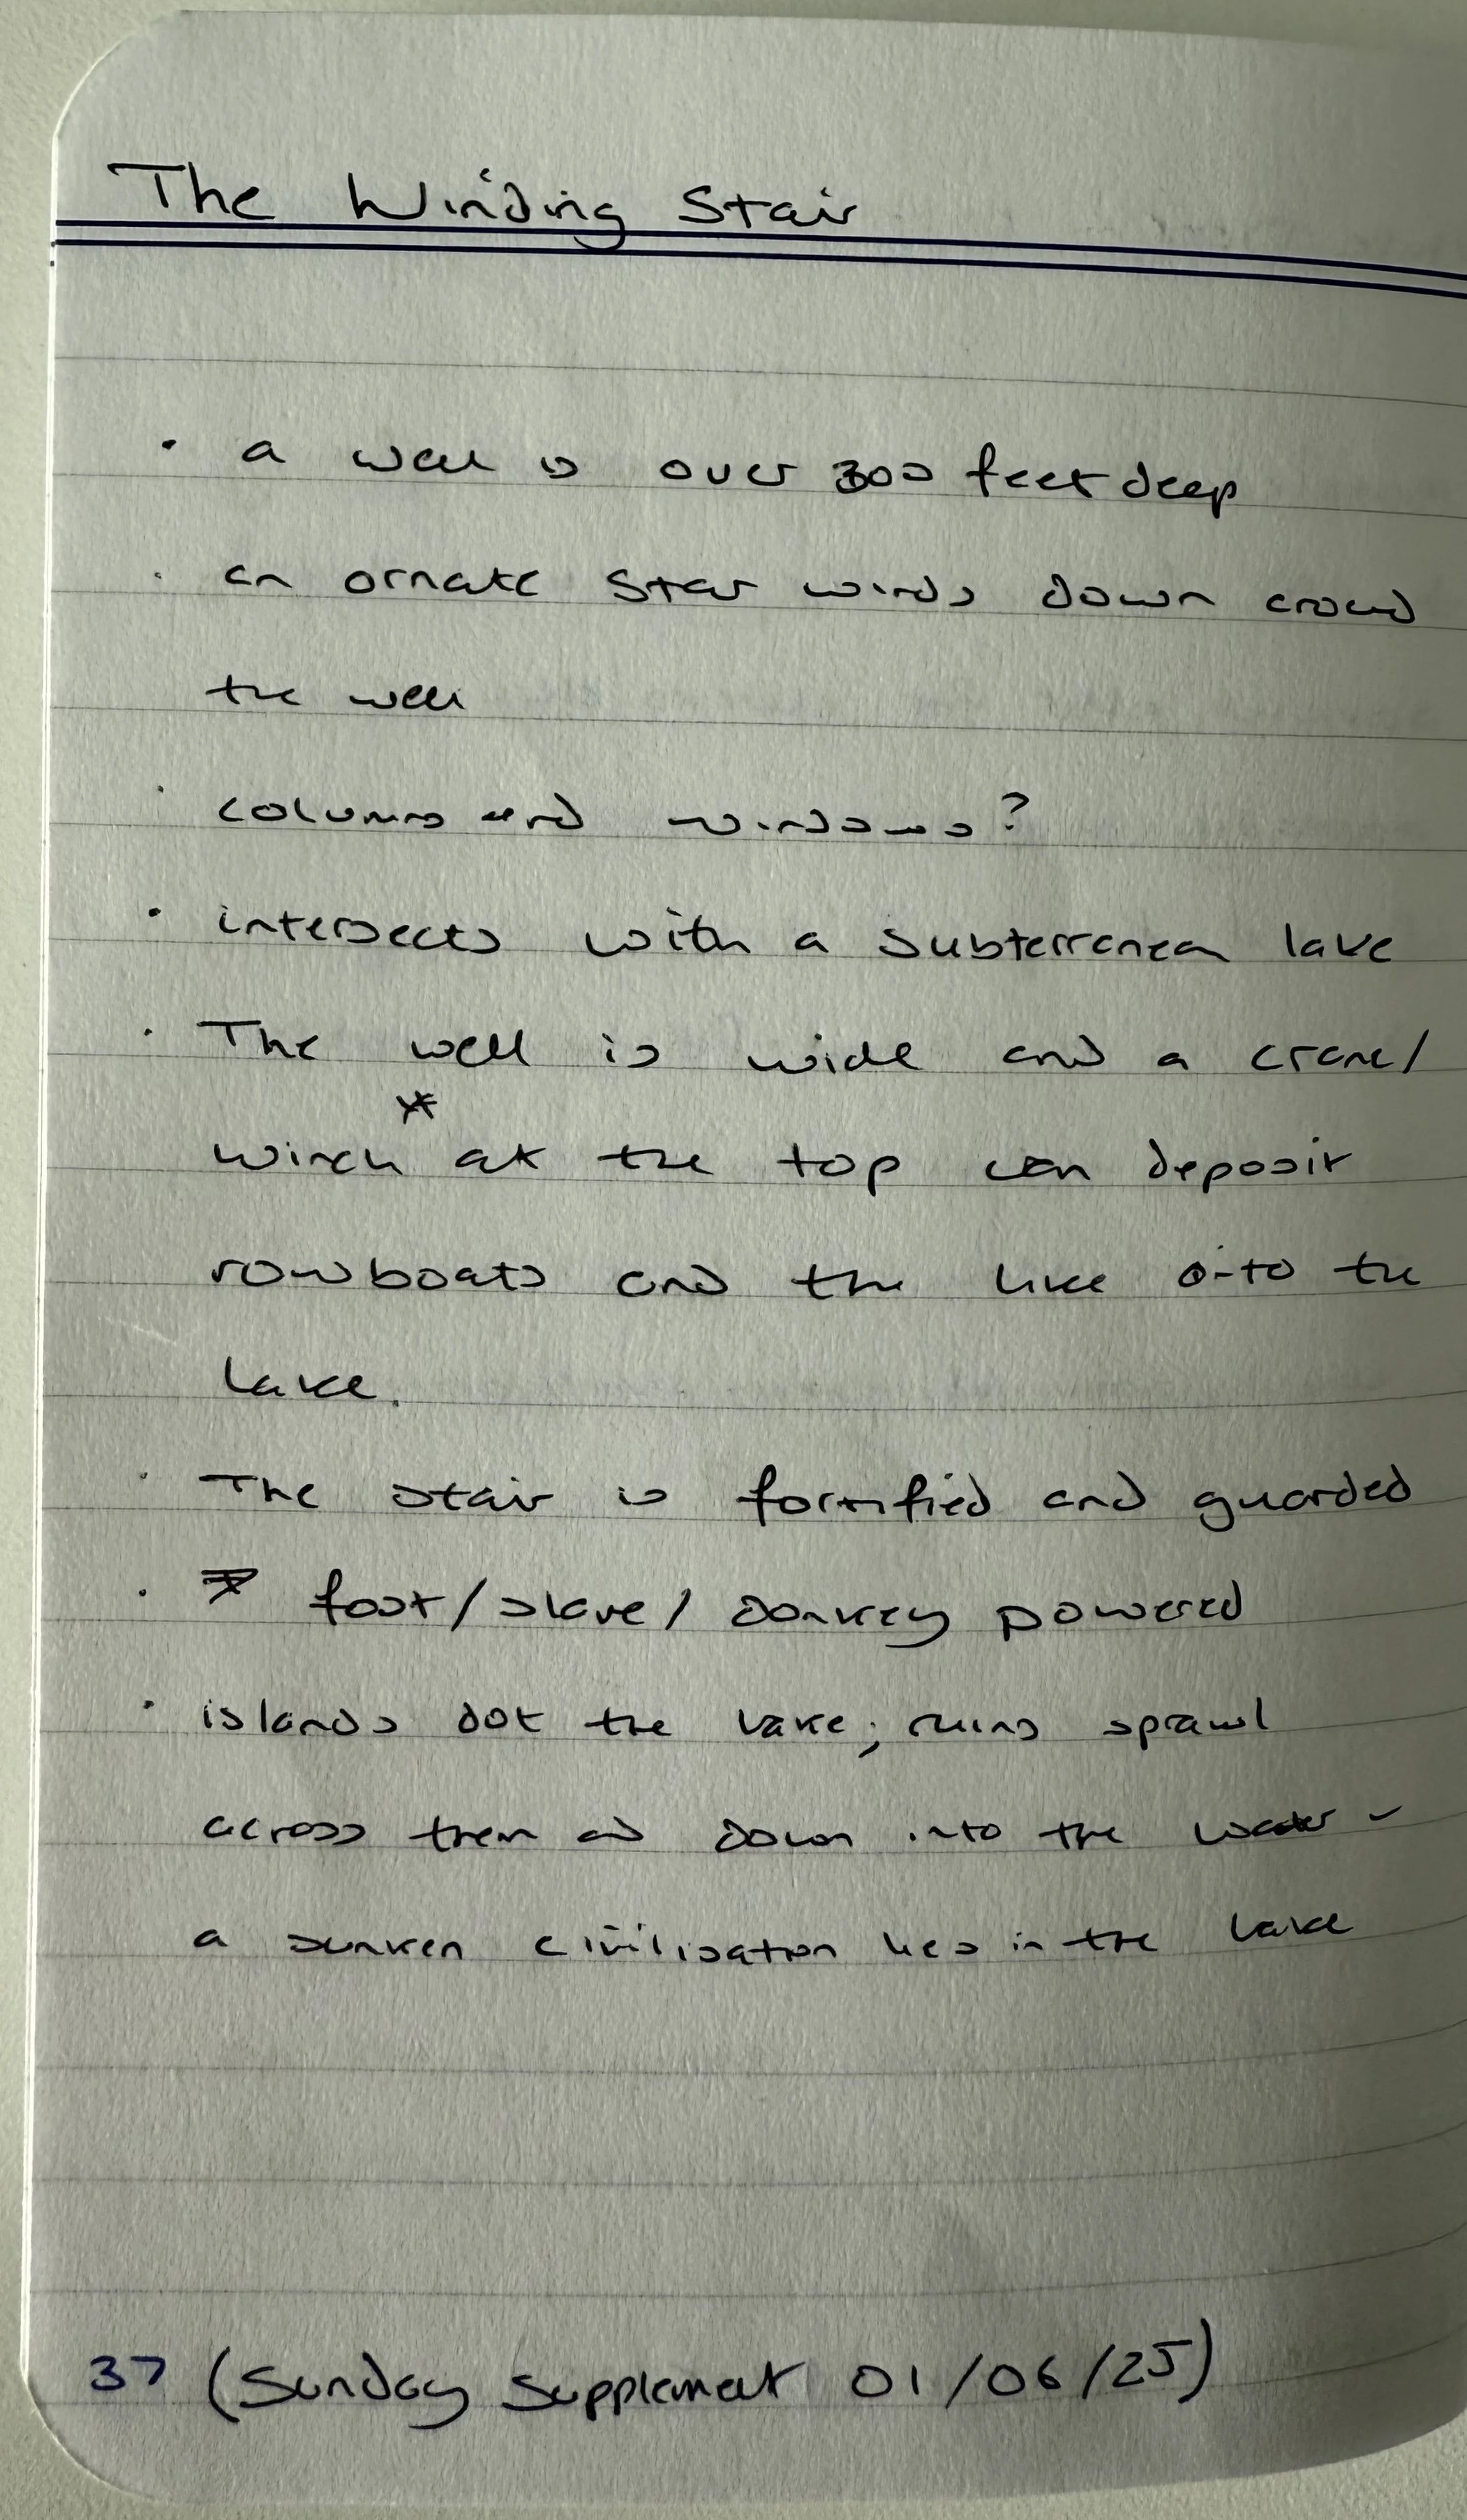 The Winding Stair
· a well is over 300 feet deep
· an ornate stair winds down around
the well
· columns and windows?
· intersects with a subterranean lake
· The well is wide and a crane/
winch * at the top can deposit
rowboats and the like onto the
lake.
· The stair is fortified and guarded
· * foot/slave/donkey powered
· islands dot the lake; ruins sprawl
across them and down into the water -
a sunken civilisation lies in the lake
37 (Sunday Supplement 01/06/25)